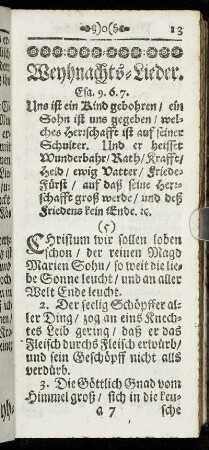 13
Weyhnachts-Lieder.
Esa. 9. 6. 7.
Uns ist ein Kind gebohren / ein
Sohn ist uns gegeben / wel-
ches Herrschafft ist auf seiner
Schulter. Und er heisset
Wunderbahr / Rath / Krafft /
Held / ewig Vatter / Friede-
Fürst / auf daß seine Herr-
schafft groß werde / und deß
Friedens kein Ende. ꝛc.
(5)
Christum wir sollen loben
schon / der reinen Magd
Marien Sohn / so weit die lie-
be Sonne leucht / und an aller
Welt Ende leucht.
2. Der seelig Schöpffer al-
ler Ding / zog an eins Knech-
tes Leib gering / daß er das
Fleisch durchs Fleisch erwürb /
und sein Geschöpff nicht alls
verdürb.
3. Die Göttlich Gnad vom
Himmel groß / sich in die keu-
a 7
sche